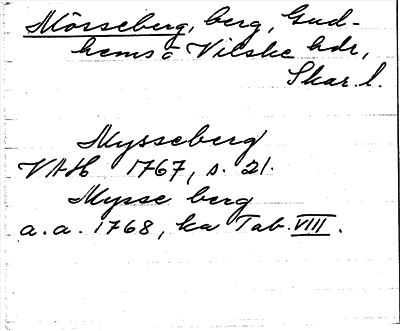 Mösseberg, berg, Gud-
hems o Vilske hdr,
Skar. l.
Mysseberg
VAH 1767, s. 21.
Mysse berg
a. a. 1768, ka Tab. VIII.